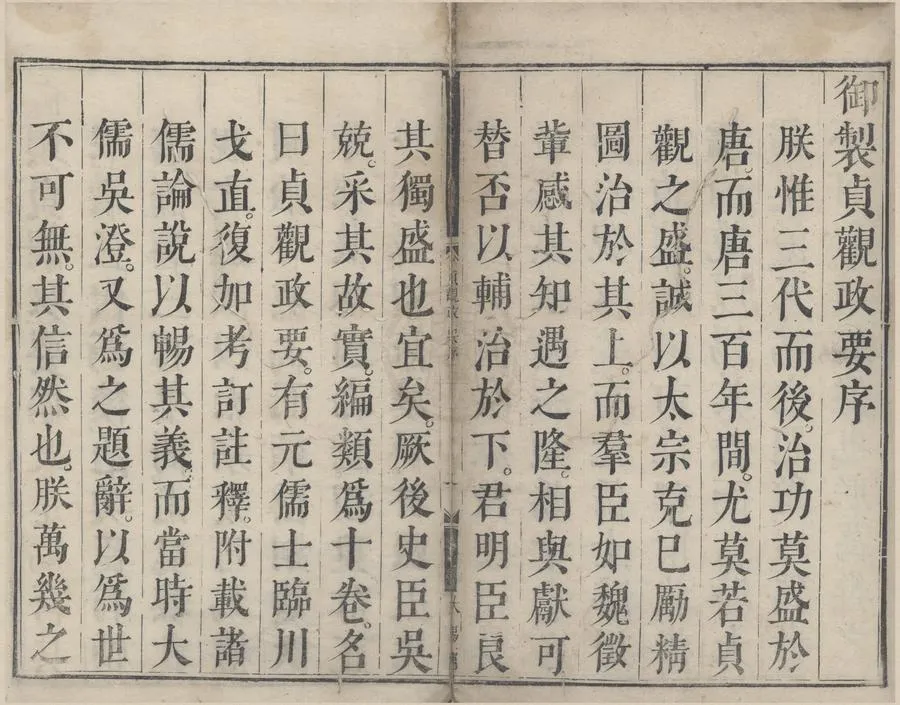 御製貞觀政要序
朕惟三代而後。治功莫盛於
唐。而唐三百年間。尤莫若貞
觀之盛。誠以太宗克巳勵精
圖治於其上。而羣臣如魏徵
軰感其知遇之隆。相與獻可
替否以輔治於下。君明臣良
其獨盛也宜矣。厥後史臣吳
兢。采其故實。編類爲十卷。名
曰貞觀政要。有元儒士臨川
戈直。復加考訂註釋。附載諸
儒論說以暢其義。而當時大
儒吳澄。又爲之題辭。以爲世
不可無。其信然也。朕萬幾之